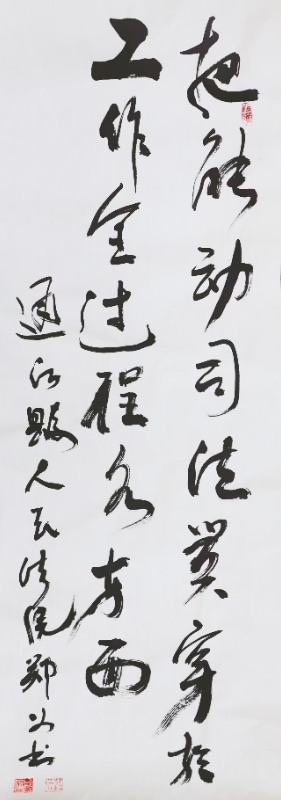 把能动司法贯穿于
工作全过程各方面
通江县人民法院郑书